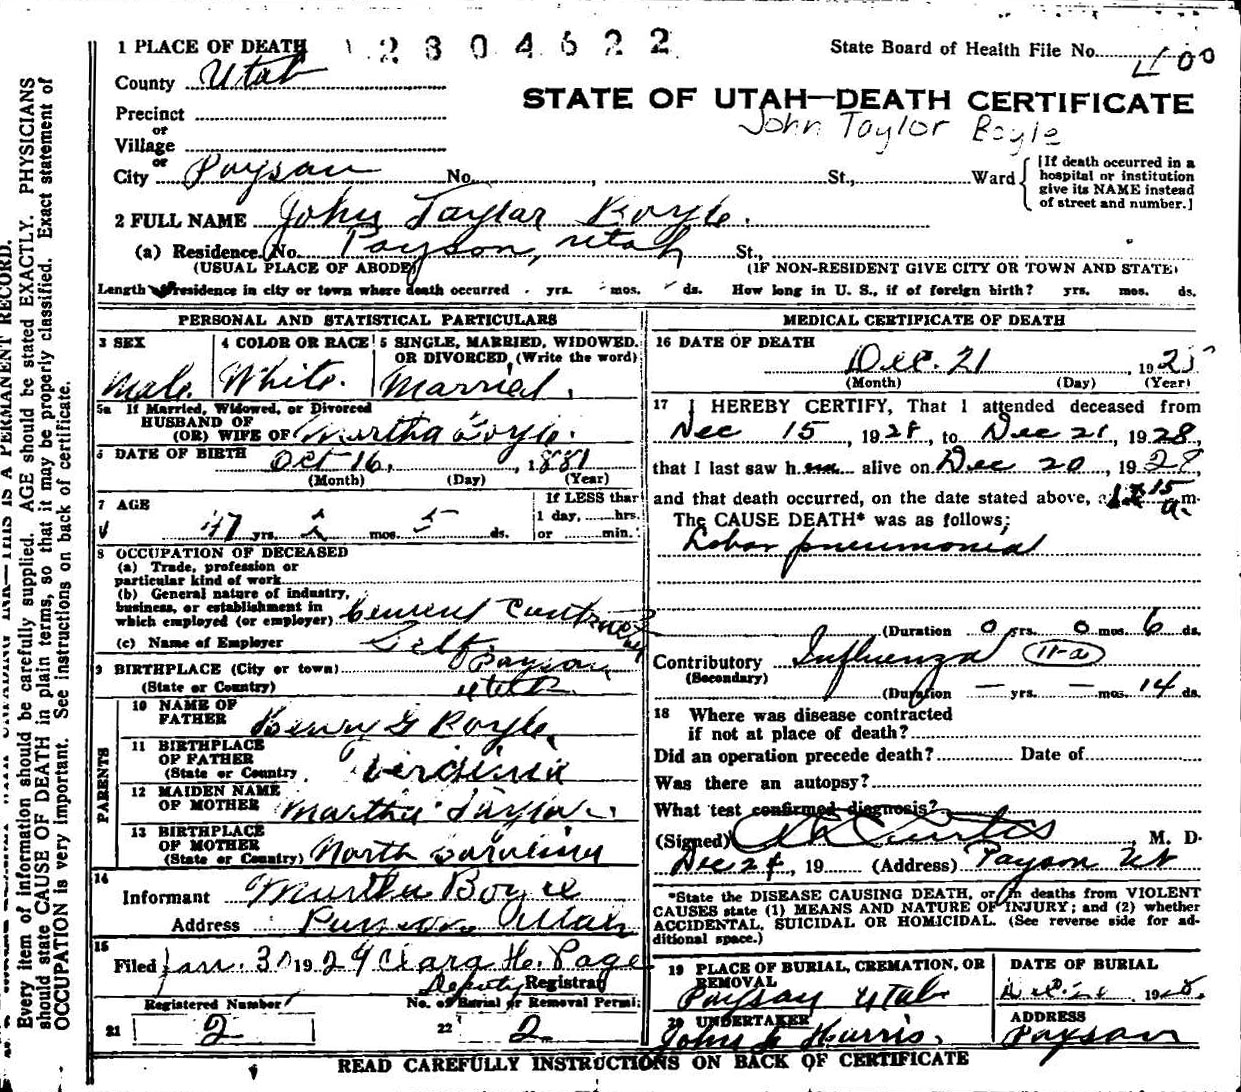 1 PLACE OF DEATH 2304622 State Board of Health File No. 400
County Utah
STATE OF UTAH—DEATH CERTIFICATE
John Taylor Boyle
Precinct
or
Village
or
City Payson No. , St., Ward
[If death occurred in a
hospital or institution
give its NAME instead
of street and number.]
2 FULL NAME John Taylor Boyle.
(a) Residence. No. Payson, Utah St.,
(USUAL PLACE OF ABODE) (IF NON-RESIDENT GIVE CITY OR TOWN AND STATE)
Length residence in city or town where death occurred yrs. mos. ds. How long in U. S., if of foreign birth? yrs. mos. ds.
PERSONAL AND STATISTICAL PARTICULARS
3 SEX
Male
4 COLOR OR RACE
White.
5 SINGLE, MARRIED, WIDOWED.
OR DIVORCED, (Write the word)
Married.
5a If Married, Widowed, or Divorced
HUSBAND OF
(OR) WIFE OF Martha Boyle.
6 DATE OF BIRTH Oct 16, , 1881
(Month) (Day) (Year)
7 AGE
47 yrs. 2 mos. 5 ds.
If LESS than
1 day, hrs.
or min.
8 OCCUPATION OF DECEASED
(a) Trade, profession or
particular kind of work
(b) General nature of industry,
business, or establishment in
which employed (or employer) Cement Contractor
(c) Name of Employer Self
9 BIRTHPLACE (City or town) Payson,
(State or Country) Utah
PARENTS
10 NAME OF
FATHER Henry G Boyle
11 BIRTHPLACE
OF FATHER
(State or Country Virginia
12 MAIDEN NAME
OF MOTHER Martha Taylor.
13 BIRTHPLACE
OF MOTHER
(State or Country) North Carolina
14
Informant Martha Boyle
Address Payson Utah
15
Filed Jan. 3 1929 Clara H. Page
Deputy Registrar
Registered Number No. of Burial or Removal Permit
21 2 22 2
MEDICAL CERTIFICATE OF DEATH
16 DATE OF DEATH
Dec. 21 , 192
(Month) (Day) (Year)
17 I HEREBY CERTIFY, That I attended deceased from
Dec 15 , 1928, to Dec 21, 1928,
that I last saw h im alive on Dec 20 , 1928,
and that death occurred, on the date stated above, 15 a. m.
The CAUSE DEATH* was as follows;
Lobar pneumonia
(Duration 0 yrs. 0 mos. 6 ds.
Contributory Influenza 11-a
(Secondary)
(Duration — yrs. — mos. 14 ds.
18 Where was disease contracted
if not at place of death?
Did an operation precede death? Date of
Was there an autopsy?
What test confirmed diagnosis?
(Signed) Curtis M. D.
Dec 24, 19 (Address) Payson Ut
*State the DISEASE CAUSING DEATH, or in deaths from VIOLENT
CAUSES state (1) MEANS AND NATURE OF INJURY; and (2) whether
ACCIDENTAL, SUICIDAL OR HOMICIDAL. (See reverse side for ad-
ditional space.)
19 PLACE OF BURIAL, CREMATION, OR
REMOVAL
Payson Utah
DATE OF BURIAL
Dec. 192
20 UNDERTAKER
John Harris.
ADDRESS
Payson
READ CAREFULLY INSTRUCTIONS ON BACK OF CERTIFICATE
THIS IS A PERMANENT RECORD.
Every item of information should be carefully supplied. AGE should be stated EXACTLY. PHYSICIANS
should state CAUSE OF DEATH in plain terms, so that it may be properly classified. Exact statement of
OCCUPATION is very important. See instructions on back of certificate.